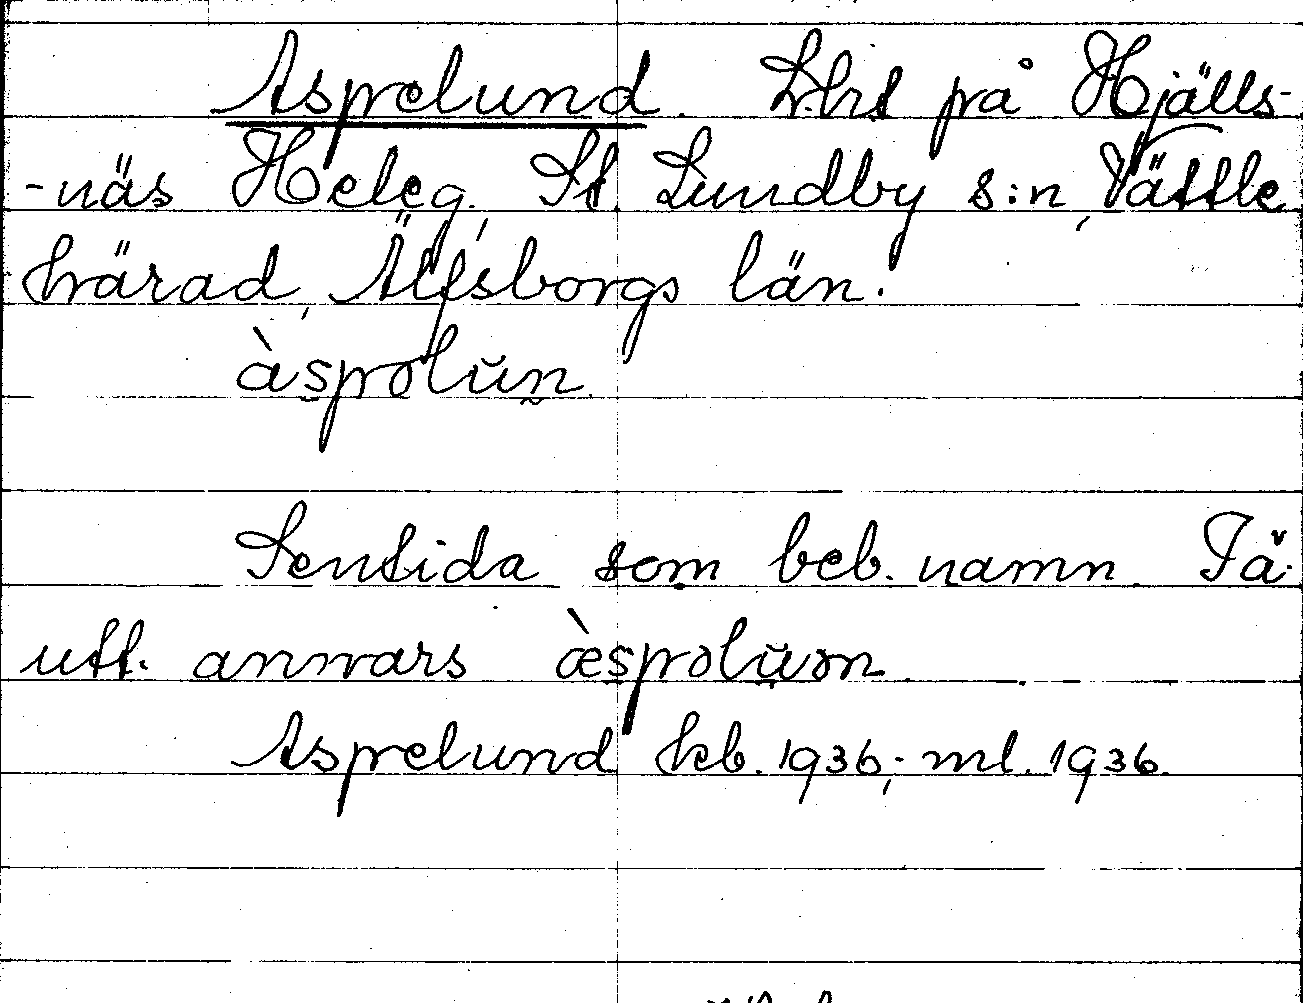 Aspelund. Lht på Hjälls-
-näs Heleg., St. Lundby s:n, Vättle
härad, Älfsborgs län.
àspəlŭn.
Sentida som beb. namn. Få
utt. annars æ̀spəlŭən.
Aspelund kb. 1936; ml. 1936.